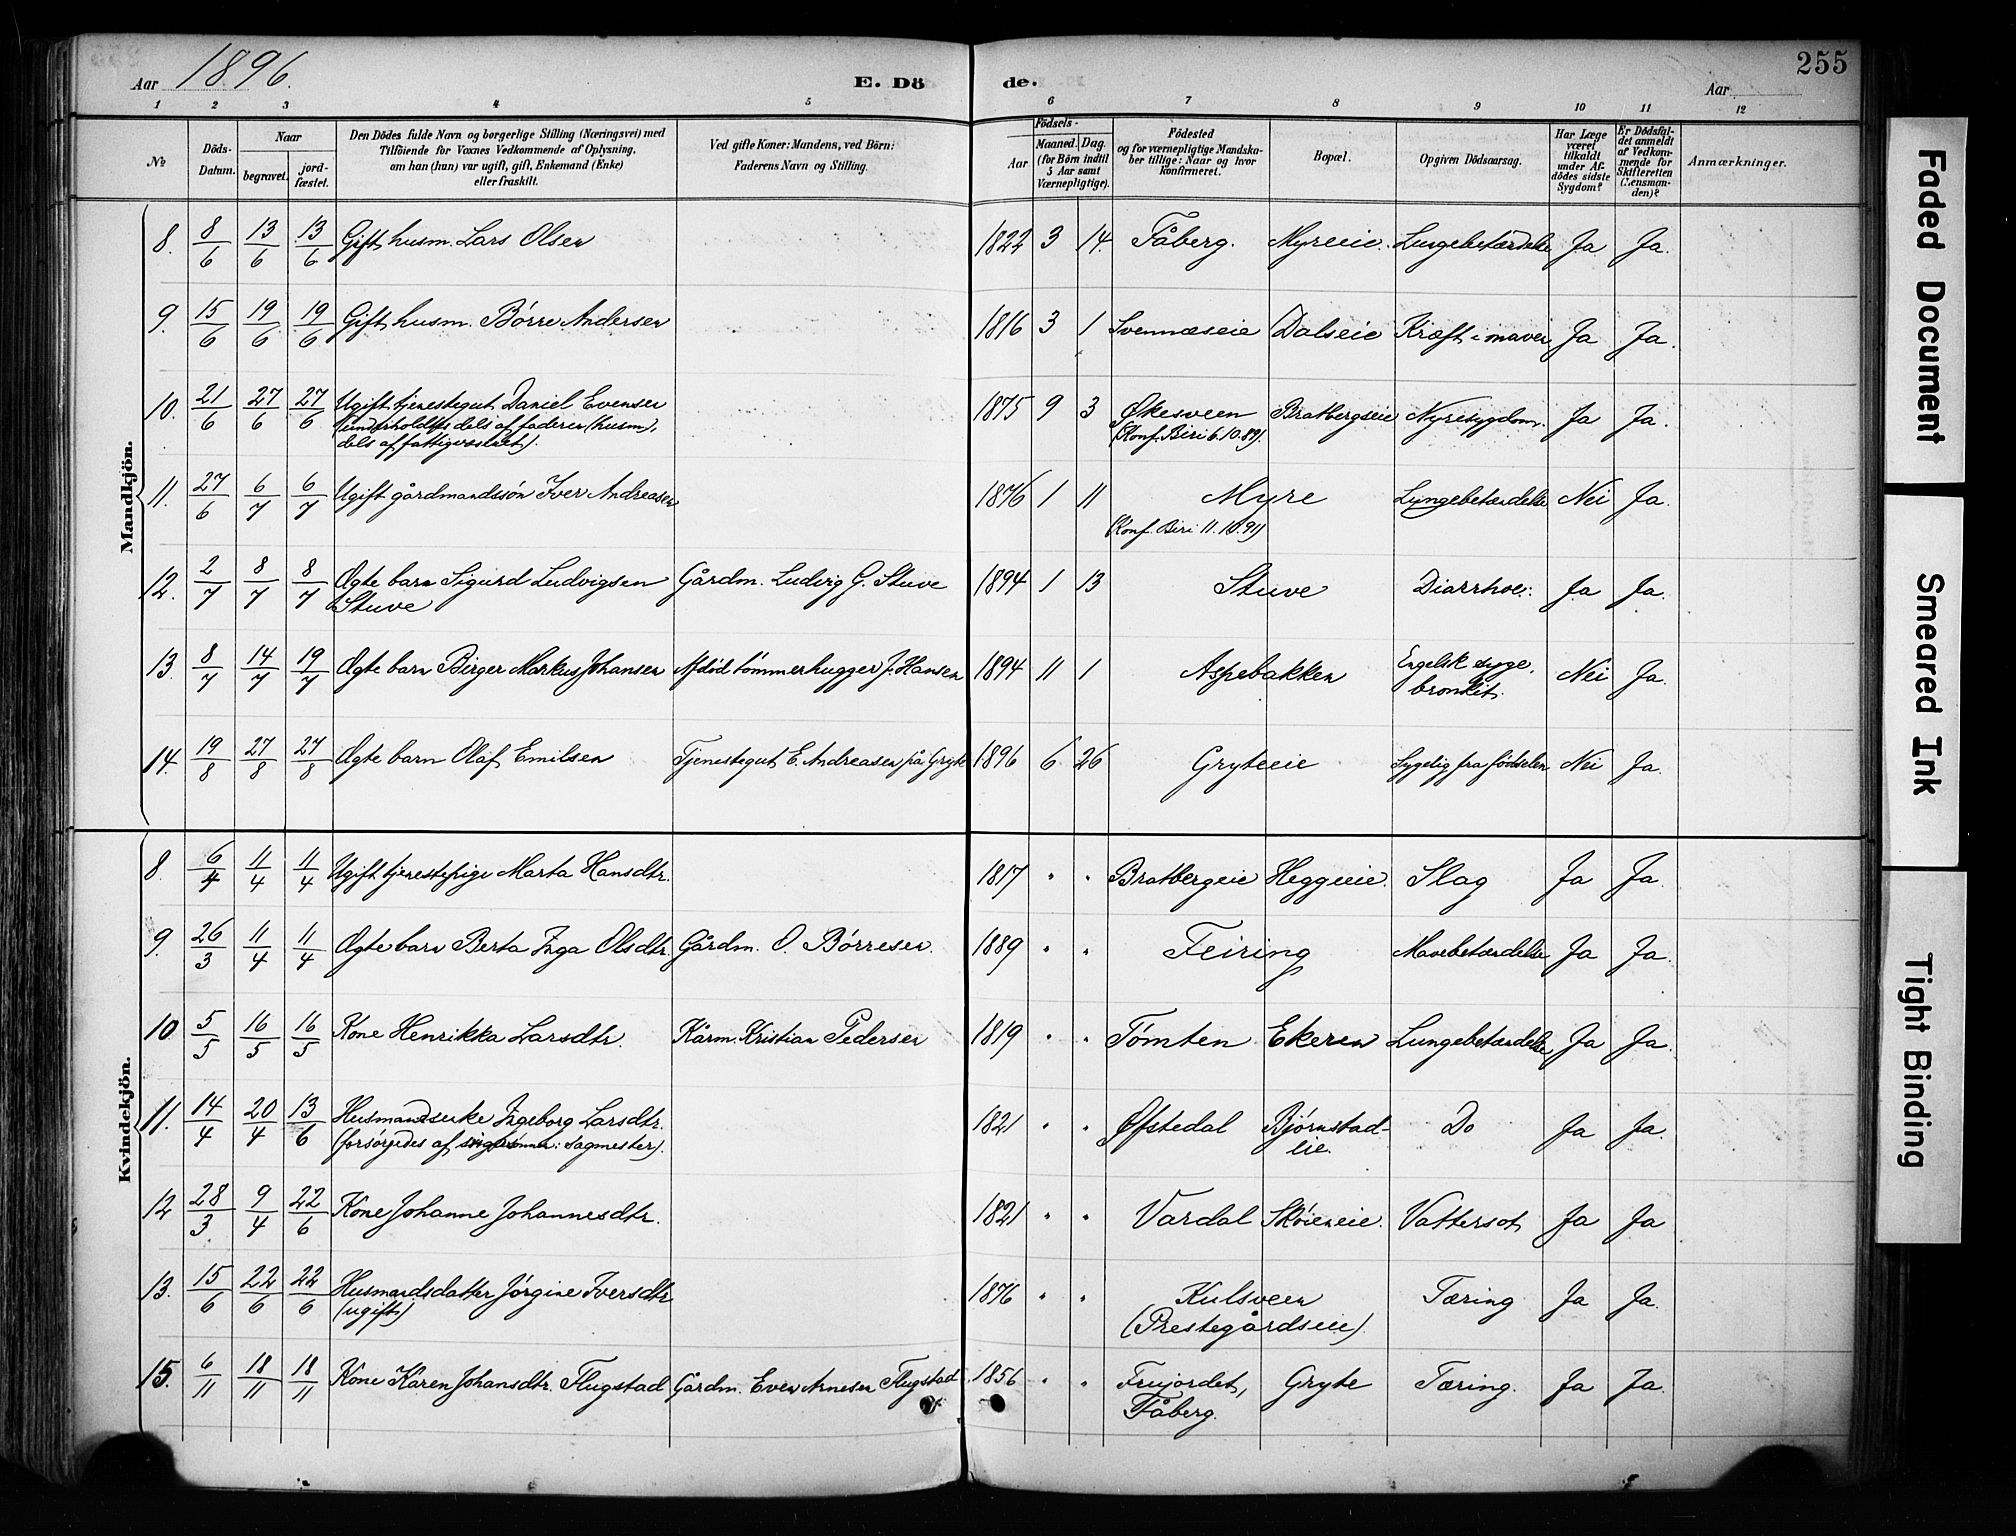 Aar 1896.
E. Dö
de.
Aar
255
1 2 3 4 5 6 7 8 9 10 11 12
No
Döds-Datum.
Naar
begravet.
jord-fæstet.
Den Dödes fulde Navn og borgerlige Stilling (Næringsvei) med
Tilföiende for Voxnes Vedkommende af Oplysning,
om han (hun) var ugift, gift, Enkemand (Enke)
eller fraskilt.
Ved gifte Koner: Mandens, ved Börn:
Faderens Navn og Stilling.
Födsels-
Aar
Maaned. Dag.
(for Börn indtil
5 Aar samt
Værnepligtige).
Födested
og for værnepligtige Mandska-
ber tillige: Naar og hvor
konfirmeret.
Bopæl.
Opgiven Dödsaarsag.
Har Læge
været
tilkaldt
under Af-
dödes sidste
Sygdom?
Er Dödsfal-
det anmeldt
af Vedkom-
mende for
Skifteretten
(Lensman-
den)?
Anmærkninger.
Mandkjön.
8. 8/6 13/6 13/6 Gift husm. Lars Olsen 1822 3 14. Fåberg. Myreeie. Lungebetændelse Ja Ja.
9. 15/6 19/6 19/6 Gift husm. Børre Andersen 1816 3 1 Svennæseie Dalseie Kræft i maven Ja Ja.
10. 21/6 27/6 27/6 Ugift tjenestegut Daniel Evensen 1875 9 3 Økesveen Bratbergseie Nyresygdom. Ja Ja.
(underholdtes dels af faderen (husm), (Konf. Biri 6.10.89).
dels af fattigvæsenet).
11. 27/6 6/7 6/7 Ugift gårdmandssøn Iver Andreasen 1876 1 11 Myre Lungebetændelse Nei Ja.
(Konf. Biri 11.10.91)
12. 2/7 8/7 8/7 Ægte barn Sigurd Ludvigsen Gårdm. Ludvig G. Stuve 1894 1 13 Stuve Diarrhoe. Ja Ja.
Stuve
13. 8/7 14/7 19/7 Ægte barn Birger Markus Johansen Afdød tømmerhugger J. Hansen 1894 11 1 Aspebakken Engelsk syge, Nei Ja.
bronkit.
14. 19/8 27/8 27/8 Ægte barn Olaf Emilsen Tjenestegut E. Andreasen på Gryte 1896 6 26 Gryteeie Sygelig fra fødselen Nei Ja.
Kvindekjön.
8. 6/4 11/4 11/4 Ugift tjenestepige Marta Hansdtr. 1817 " " Bratbergeie Heggeeie. Slag Ja Ja
9. 26/3 11/4 11/4 Ægte barn Berta Inga Olsdtr. Gårdm. O. Børresen. 1889 " " Feiring Mavebetændelse Ja Ja.
10 5/5 16/5 16/5 Kone Henrikka Larsdtr. Kårm. Kristian Pedersen 1819 " " Tømten Ekeren Lungebetændelse Ja Ja.
11. 14/4 20/4 13/6 Husmandsenke Ingeborg Larsdtr. 1821 " " Øfstedal Bjørnstad- Do Ja Ja.
(forsørgedes af svigersønnen: sagmester). eie.
12 28/3 9/4 22/6 Kone Johanne Johannesdtr. 1821 " " Vardal Skøieneie. Vattersot Ja Ja
13. 15/6 22/6 22/6 Husmandsdatter Jørgine Iversdtr 1876 " " Kulsveen Tæring Ja Ja.
(ugift) (Prestegårdseie).
15. 6/11 18/11 18/11 Kone Karen Johansdtr. Flugstad Gårdm. Even Arnesen Flugstad 1856 " " Frujordet, Gryte Tæring. Ja Ja.
Fåberg.
Faded Document
Smeared Ink
Tight Binding